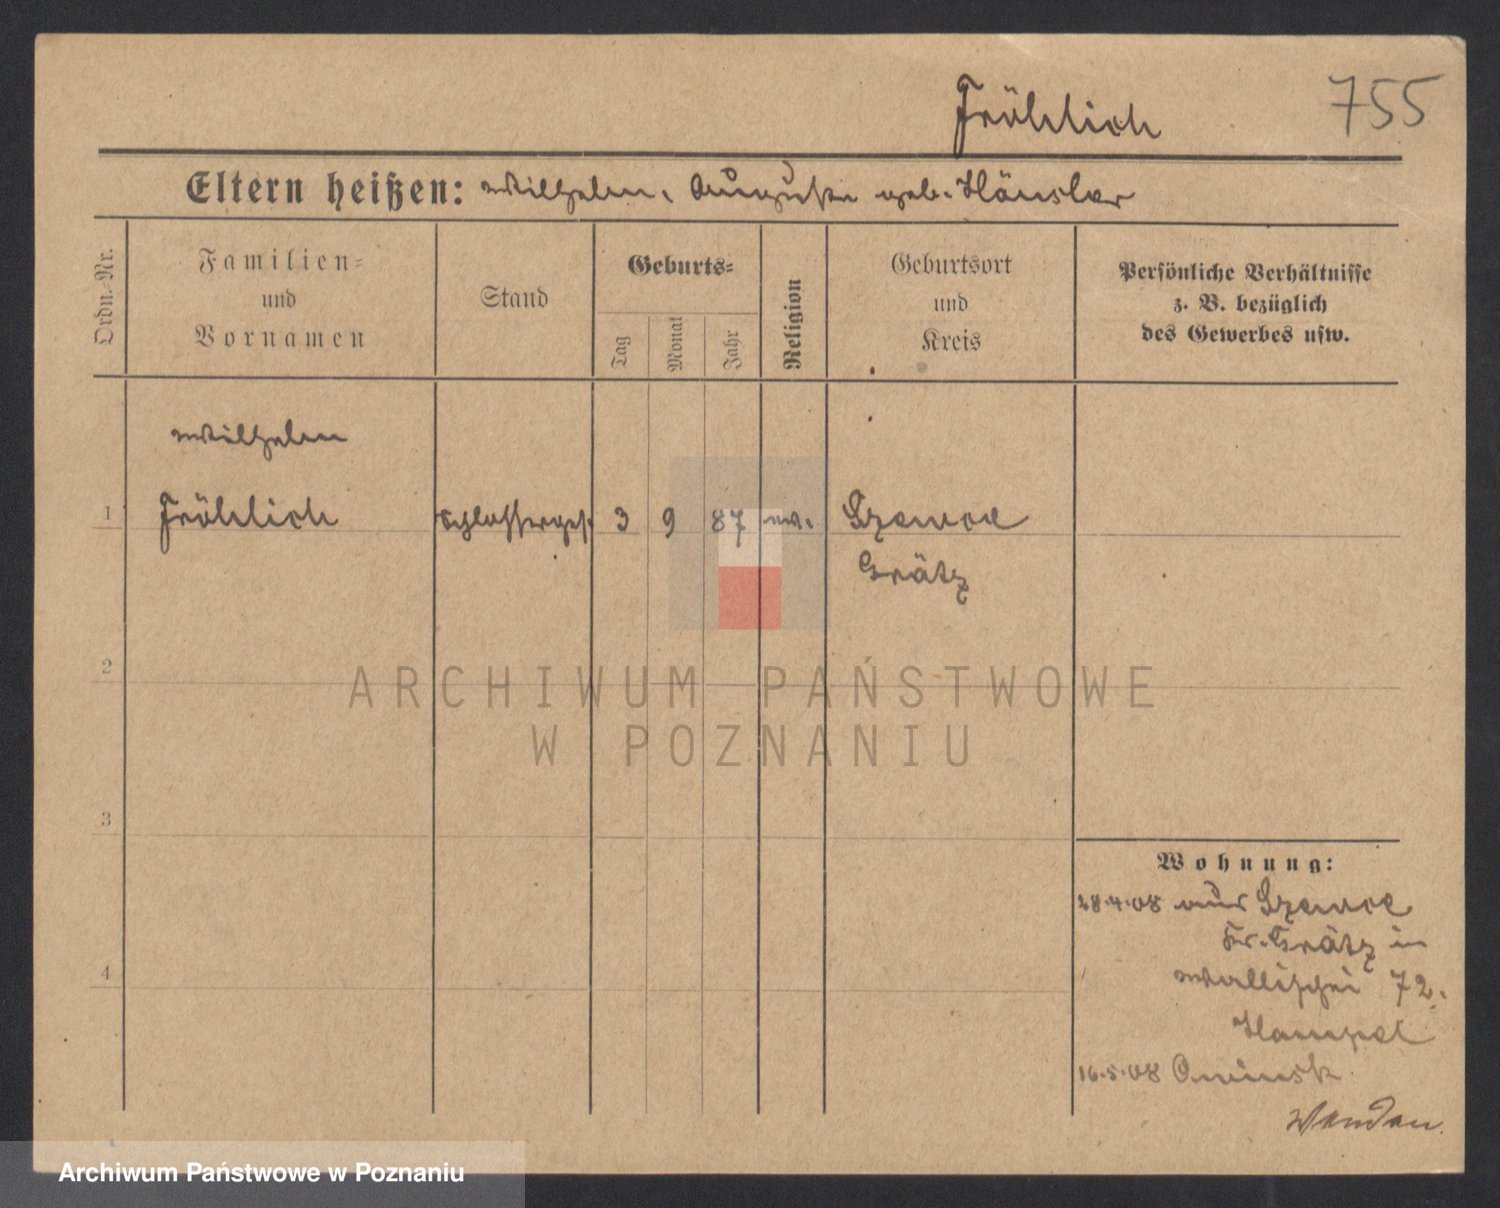 Fröhlich 755
Eltern heißen: Wilhelm, Auguste geb. Hänsler
Ordn.-Nr.
Familien-
und
Vornamen
Stand
Geburts-
Tag
Monat
Jahr
Religion
Geburtsort
und
Kreis
Persönliche Verhältnisse
z. B. bezüglich
des Gewerbes usw.
Wilhelm
1 Fröhlich Schlosserges. 3 9 87 ev.
Grätz
2
ARCHIWUM PAŃSTWOWE
W POZNANIU
3
4
Wohnung:
28.4.08 aus
Kr. Grätz in
Wallischei 72.
Hampel
16.5.08
Archiwum Państwowe w Poznaniu